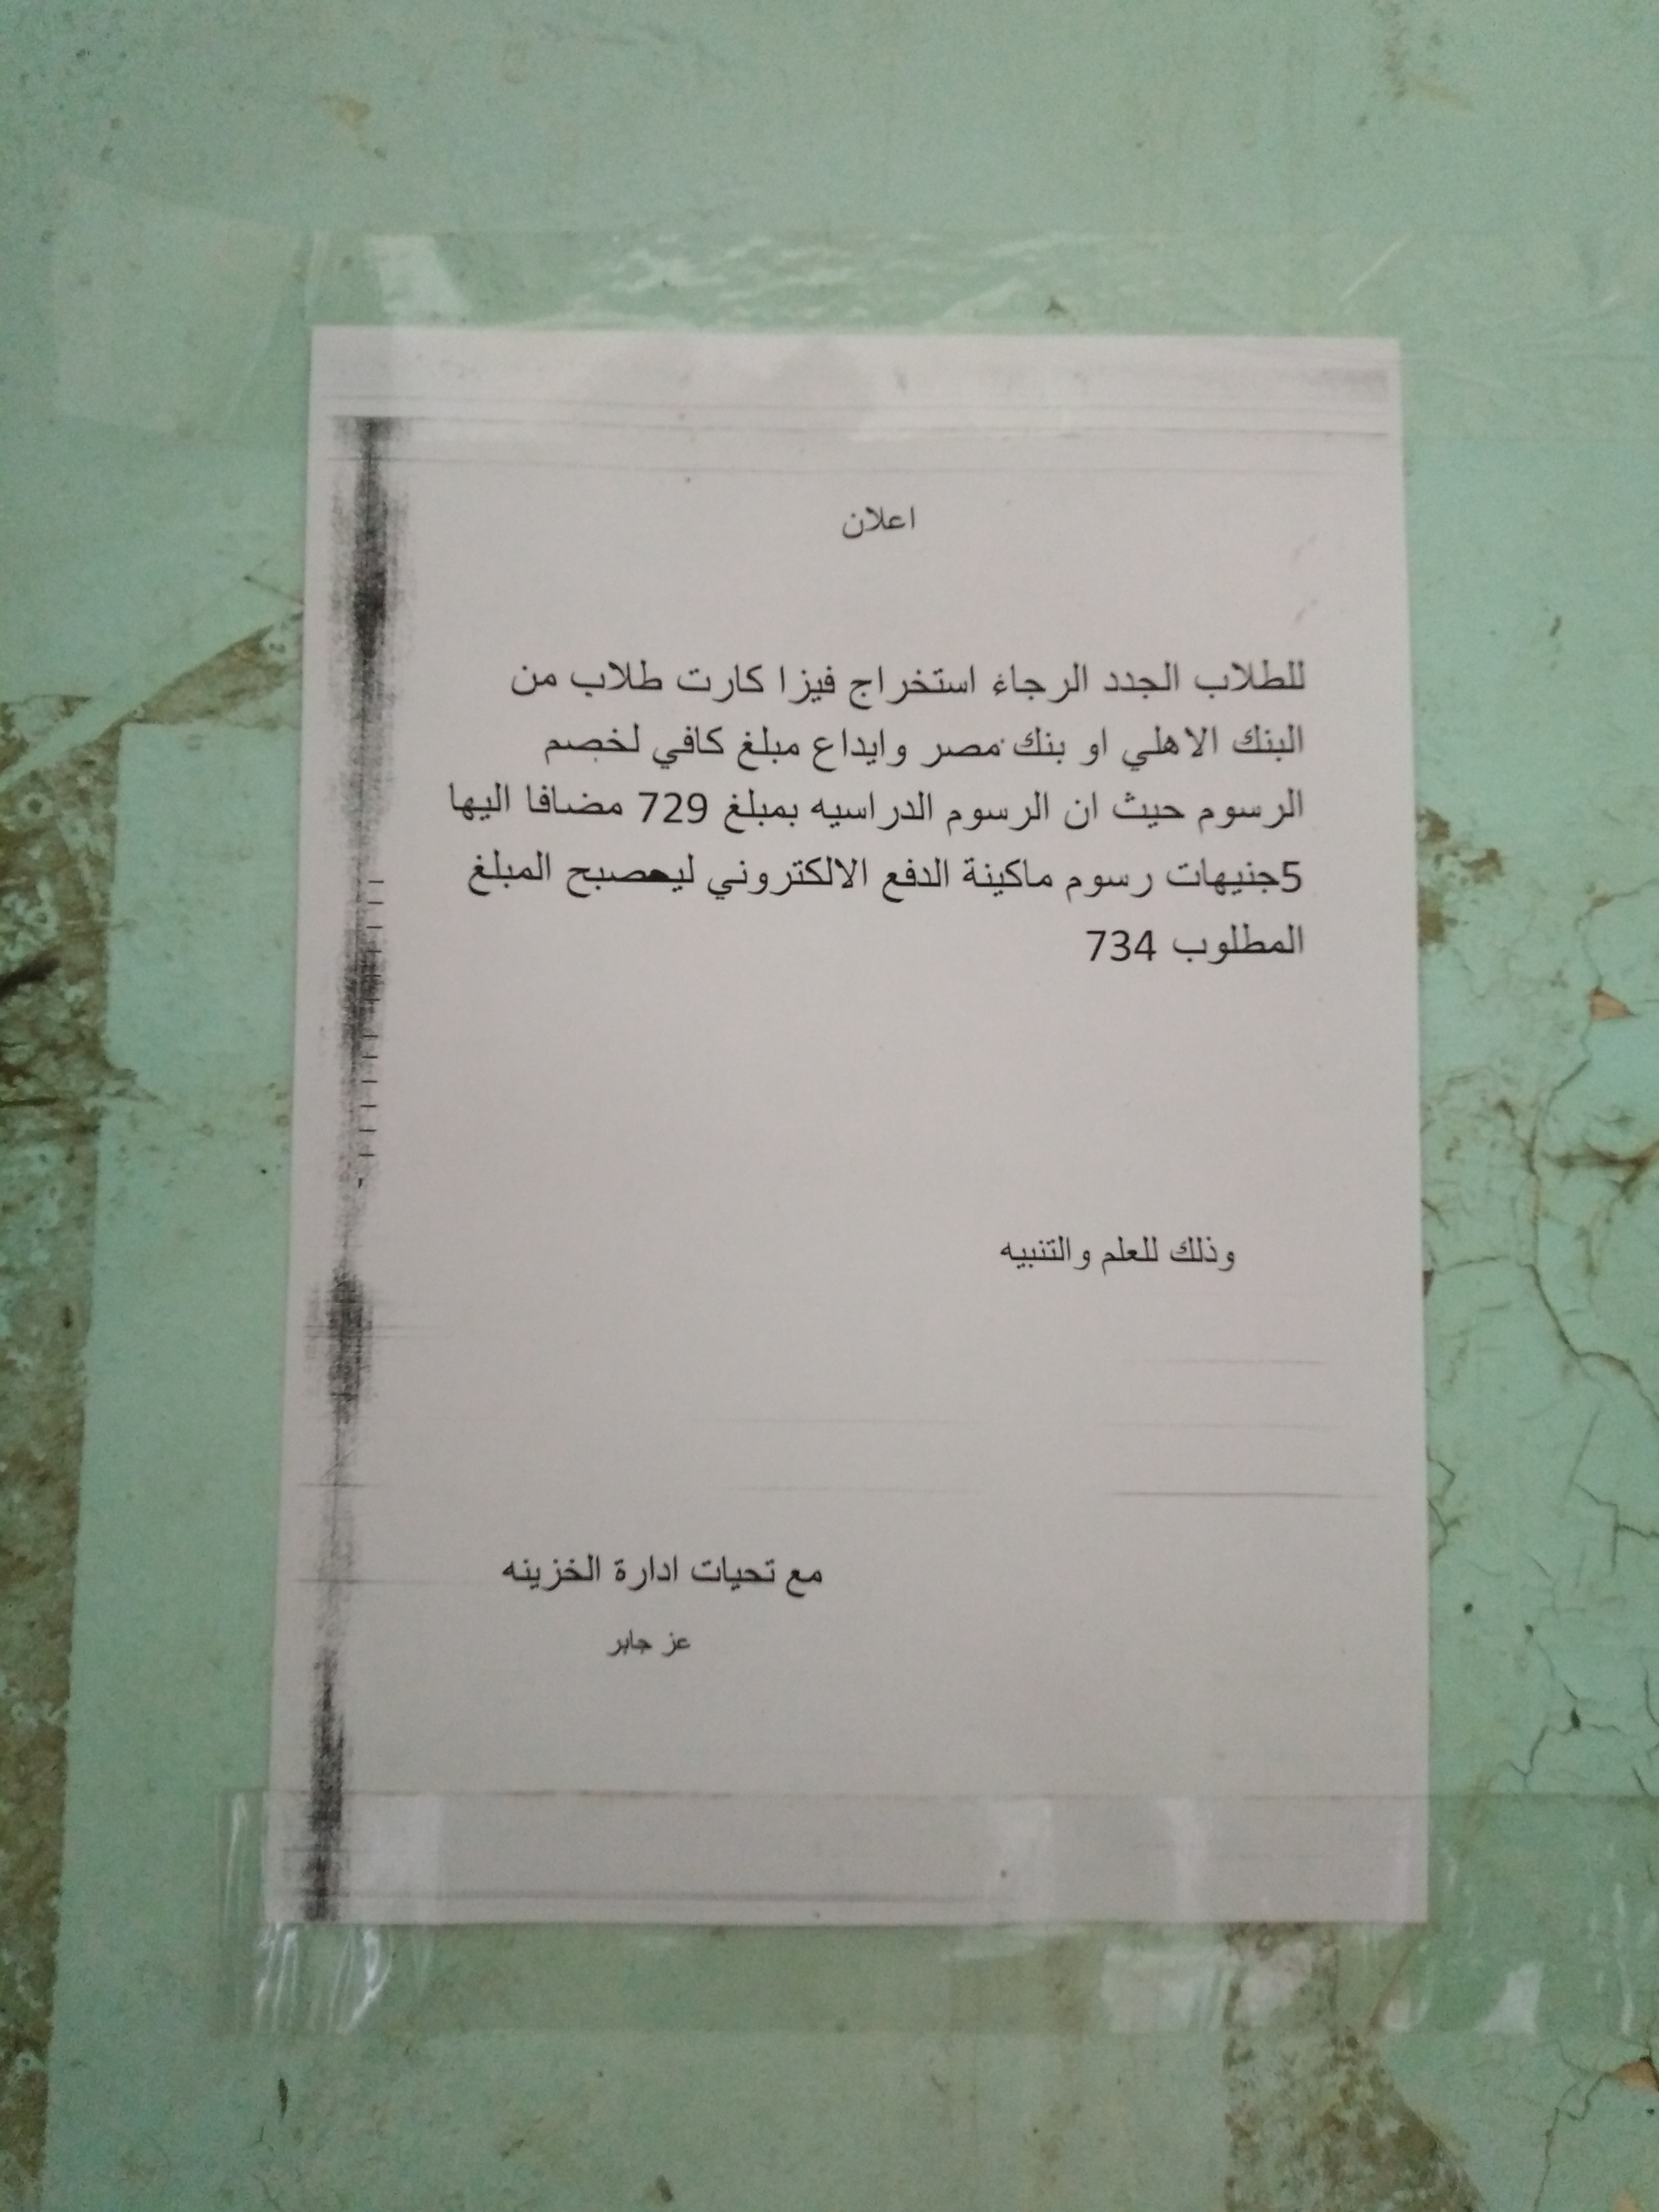 اعلان
للطلاب الجدد الرجاء استخراج فيزا كارت طلاب من
البنك الاهلي او بنك مصر وايداع مبلغ كافي لخصم
الرسوم حيث ان الرسوم الدراسيه بمبلغ 729 مضافا اليها
5جنيهات رسوم ماكينة الدفع الالكتروني ليصبح المبلغ
المطلوب 734
وذلك للعلم والتنبيه
مع تحيات ادارة الخزينه
عز جابر